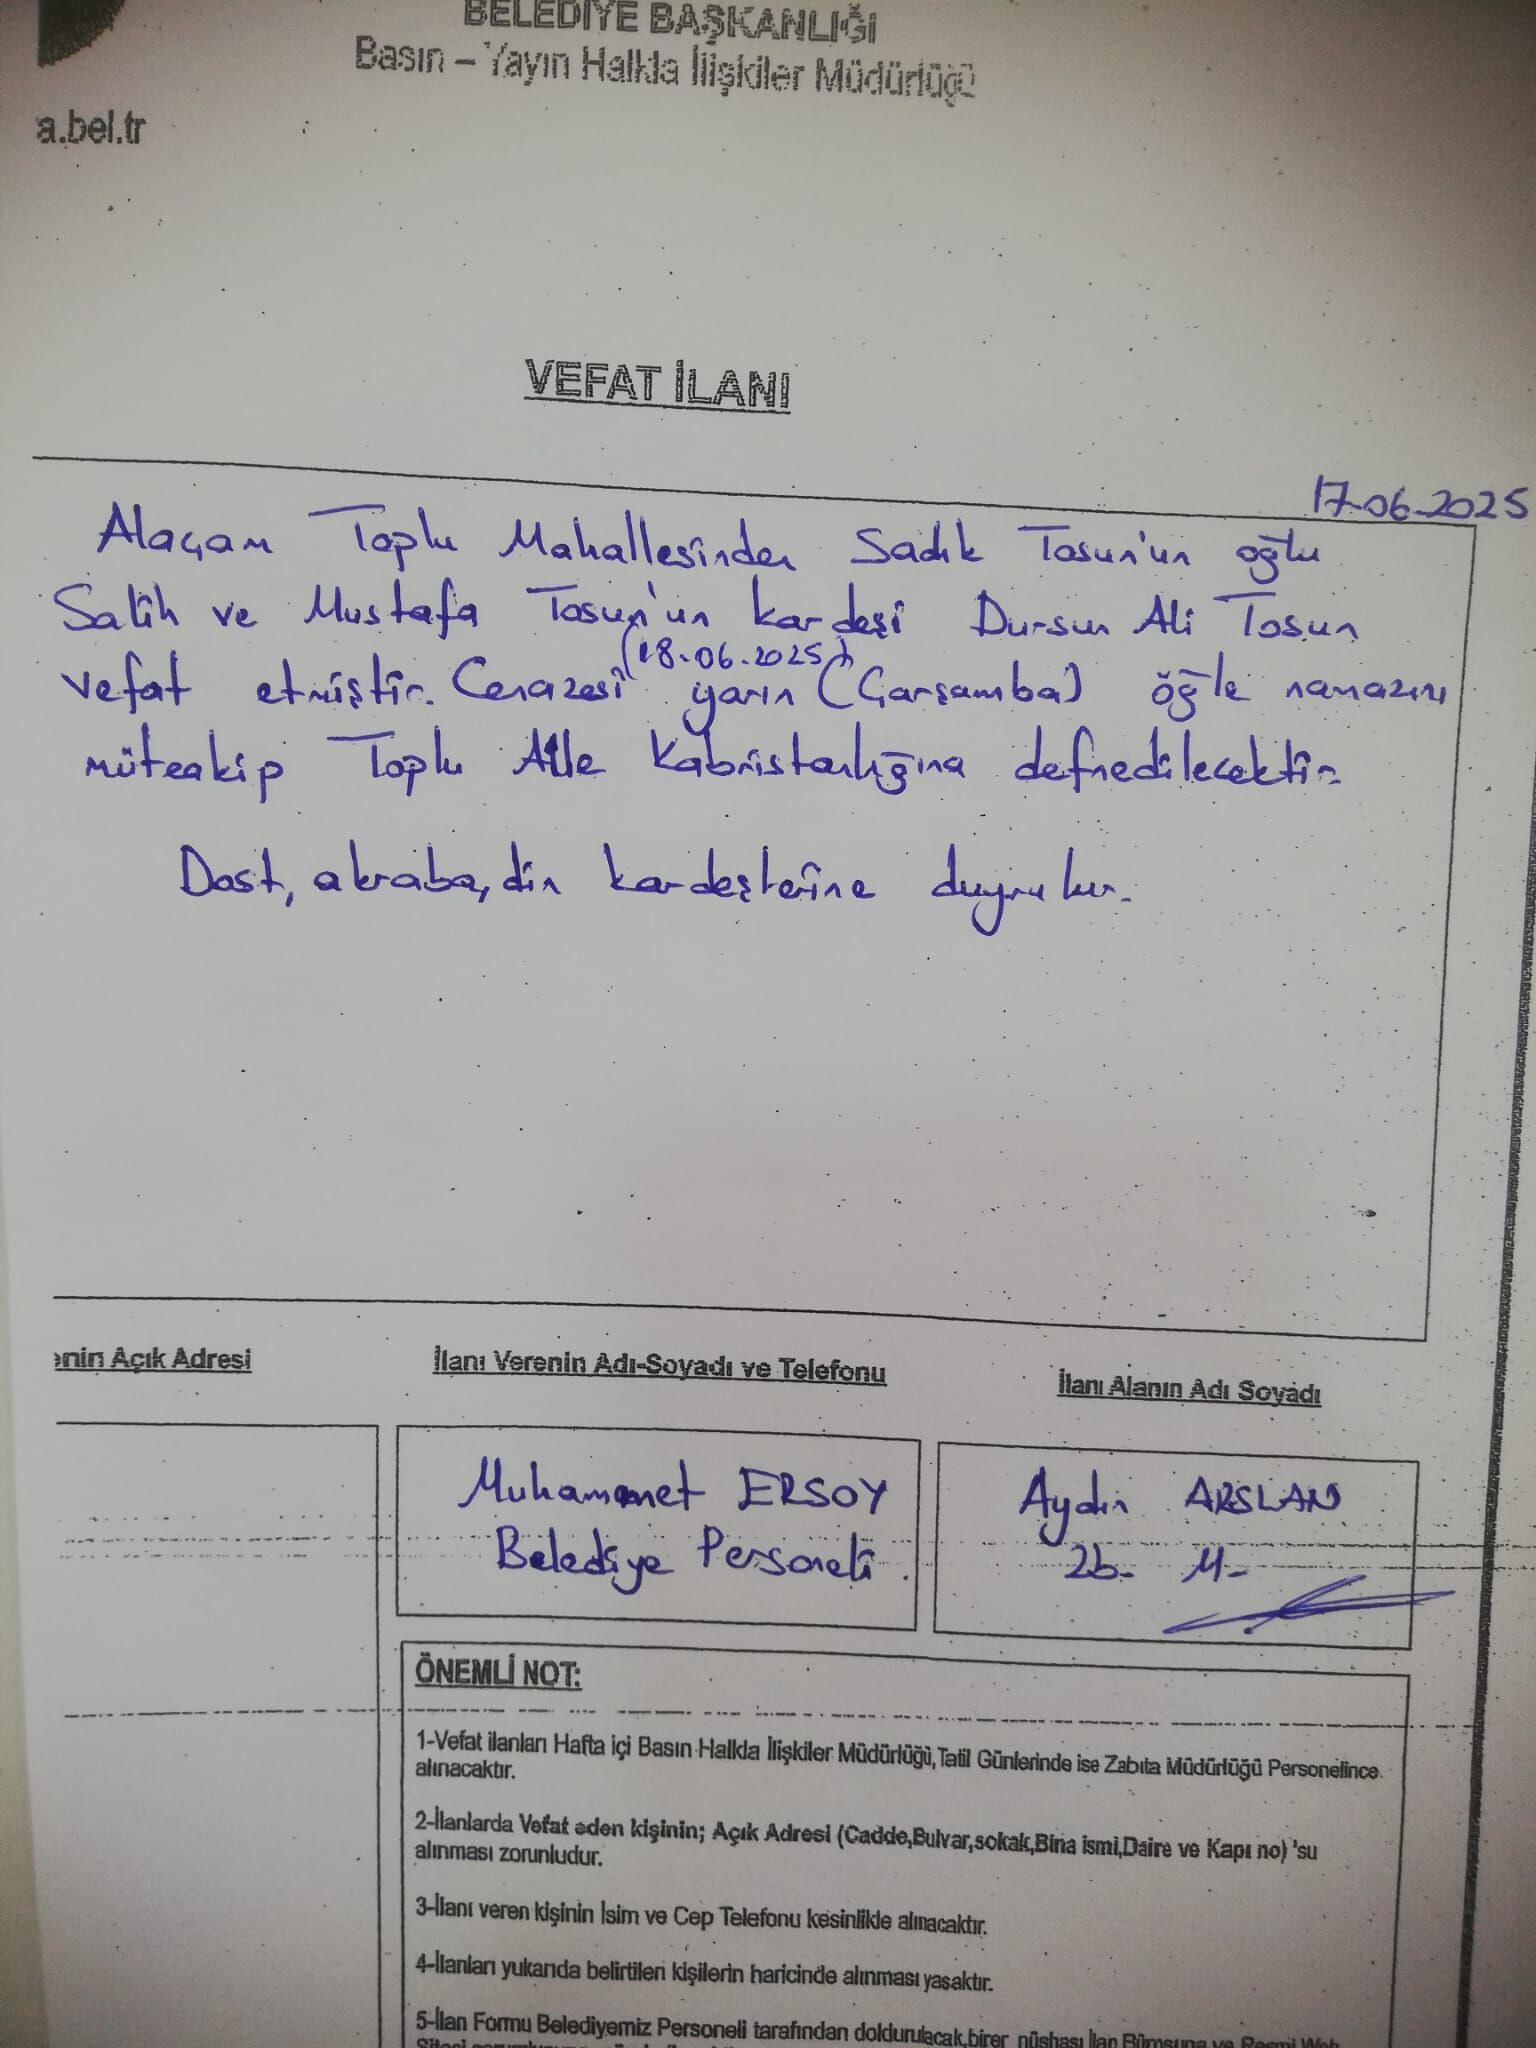 BELEDİYE BAŞKANLIĞI
Basın – Yayın Halkla İlişkiler Müdürlüğü
a.bel.tr
VEFAT İLANI
17-06-2025
Alaçam Toplu Mahallesinden Sadık Tosun'un oğlu
Salih ve Mustafa Tosun'un kardeşi Dursun Ali Tosun
(18.06.2025)
vefat etmiştir. Cenazesi yarın (Çarşamba) öğle namazını
müteakip Toplu Aile Kabristanlığına defnedilecektir.
Dost, akraba, din kardeşlerine duyrulur.
enin Açık Adresi
İlanı Verenin Adı-Soyadı ve Telefonu
İlanı Alanın Adı Soyadı
Muhammet ERSOY
Belediye Personeli.
Aydın ARSLAN
Zb. M.
ÖNEMLİ NOT:
1-Vefat ilanları Hafta içi Basın Halkla İlişkiler Müdürlüğü,Tatil Günlerinde ise Zabıta Müdürlüğü Personelince
alınacaktır.
2-İlanlarda Vefat eden kişinin; Açık Adresi (Cadde,Bulvar,sokak,Bina ismi,Daire ve Kapı no) 'su
alınması zorunludur.
3-İlanı veren kişinin İsim ve Cep Telefonu kesinlikle alınacaktır.
4-İlanları yukarıda belirtilen kişilerin haricinde alınması yasaktır.
5-İlan Formu Belediyemiz Personeli tarafından doldurulacak,birer nüshası İlan Bürosuna ve Resmi Web